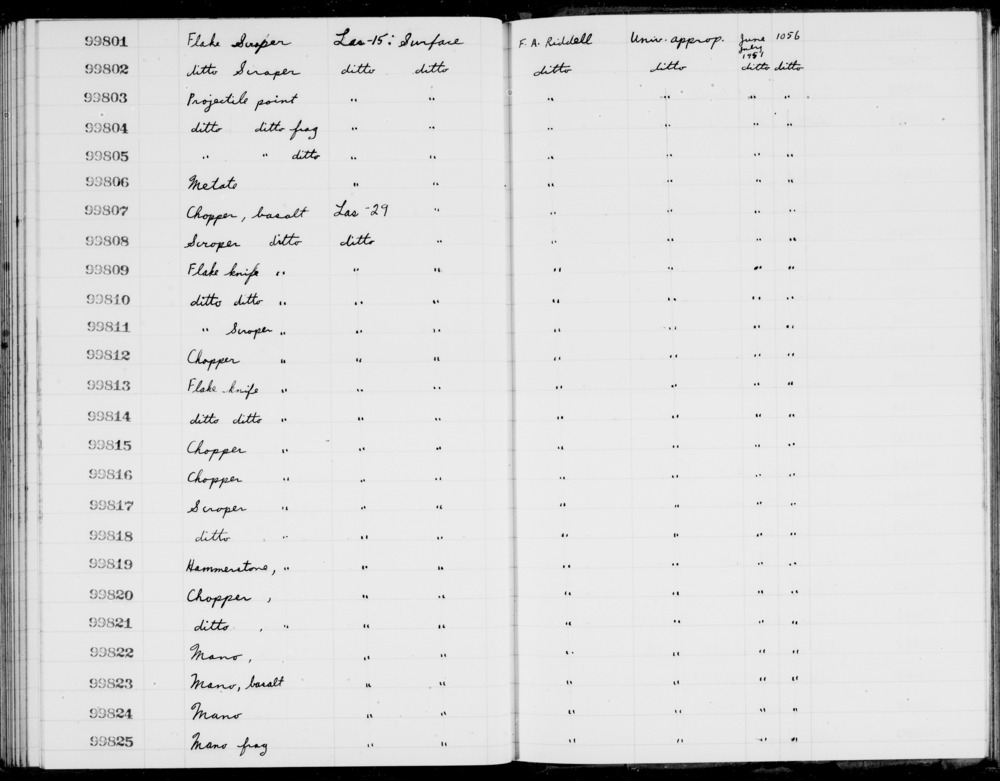 99801 Flake Scraper Las-15: Surface F. A. Riddell Univ. approp. June July 1951 1056
99802 ditto Scraper ditto ditto ditto ditto ditto ditto
99803 Projectile point " " " " " "
99804 ditto ditto frag " " " " " "
99805 " " ditto " " " " " "
99806 Metate " " " " " "
99807 Chopper, basalt Las-29 " " " " "
99808 Scraper ditto ditto " " " " "
99809 Flake knife " " " " " " "
99810 ditto ditto " " " " " " "
99811 " Scraper " " " " " " "
99812 Chopper " " " " " " "
99813 Flake knife " " " " " " "
99814 ditto ditto " " " " " " "
99815 Chopper " " " " " " "
99816 Chopper " " " " " " "
99817 Scraper " " " " " " "
99818 ditto " " " " " " "
99819 Hammerstone, " " " " " " "
99820 Chopper , " " " " " "
99821 ditto , " " " " " " "
99822 Mano, " " " " " "
99823 Mano, basalt " " " " " "
99824 Mano " " " " " "
99825 Mano frag " " " " " "